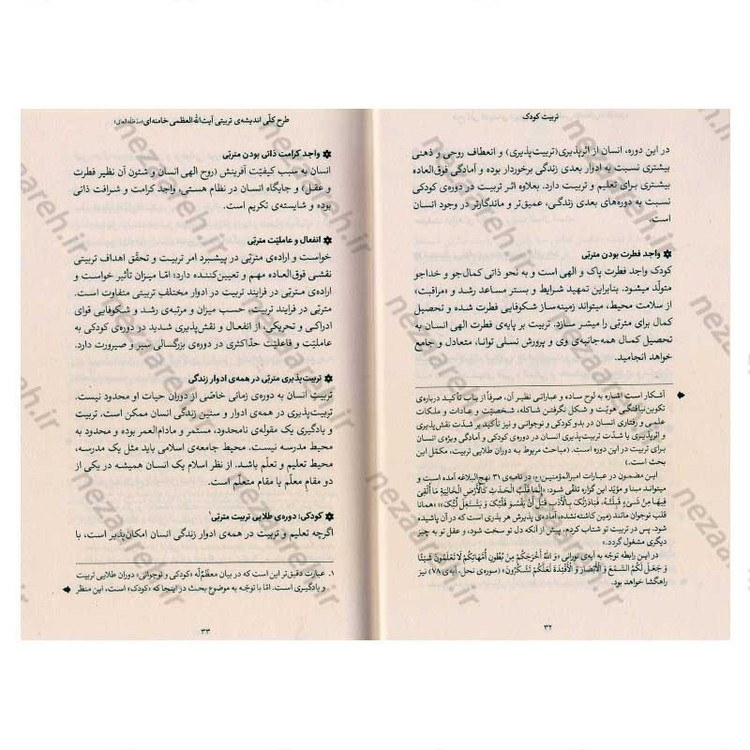 تربیت کودک
در این دوره، انسان از اثرپذیری (تربیت‌پذیری) و انعطاف روحی و ذهنی
بیشتری نسبت به ادوار بعدی زندگی برخوردار بوده و آمادگی فوق‌العاده
بیشتری برای تعلیم و تربیت دارد. بعلاوه اثر تربیت در دوره‌ی کودکی
نسبت به دوره‌های بعدی زندگی، عمیق‌تر و ماندگارتر در وجود انسان
است.
واجد فطرت بودن متربّی
کودک واجد فطرت پاک و الهی است و به نحو ذاتی کمال‌جو و خداجو
متولّد میشود. بنابراین تمهید شرایط و بستر مساعد رشد و «مراقبت»
از سلامت محیط، میتواند زمینه‌ساز شکوفایی فطرت شده و تحصیل
کمال برای متربّی را میسّر سازد. تربیت بر پایه‌ی فطرت الهی انسان به
تحصیل کمال همه‌جانبه‌ی وی و پرورش نسلی توانا، متعادل و جامع
خواهد انجامید.
آشکار است اشاره به لوح ساده و عباراتی نظیر آن، صرفاً از باب تأکید درباره‌ی
تکوین‌نیافتگی هویّت و شکل نگرفتن شاکله، شخصیّت و عادات و ملکات
علمی و رفتاری انسان در بدو کودکی و نوجوانی و نیز تأکید بر شدّت نقش‌پذیری
و اثرپذیری یا شدّت تربیت‌پذیری انسان در دوره‌ی کودکی و آمادگی ویژه‌ی انسان
برای تربیت در این دوره است. (مباحث مربوط به دوران تربیت، مکمّل این
بحث است.)
این مضمون در عبارات امیرالمؤمنین در نامه‌ی ۳۱ نهج‌البلاغه آمده است و
میتواند مبنا و مؤیّد این گزاره تلقّی شود: «إِنَّمَا قَلْبُ الْحَدَثِ كَالْأَرْضِ الْخَالِيَةِ مَا أُلْقِيَ
فِيهَا مِنْ شَيْءٍ قَبِلَتْهُ، فَبَادَرْتُكَ بِالْأَدَبِ قَبْلَ أَنْ يَقْسُوَ قَلْبُكَ وَ يَشْتَغِلَ لُبُّكَ» «همانا
قلب نوجوان مانند زمین کاشته‌نشده، آماده‌ی پذیرش هر بذری است که در آن پاشیده
شود. پس در تربیت تو شتاب کردم، پیش از آنکه دل تو سخت شود، و عقل تو به چیز
دیگری مشغول گردد.»
در این رابطه توجّه به آیه‌ی نورانی «وَ اللَّهُ أَخْرَجَكُمْ مِنْ بُطُونِ أُمَّهَاتِكُمْ لَا تَعْلَمُونَ شَيْئًا
وَ جَعَلَ لَكُمُ السَّمْعَ وَ الْأَبْصَارَ وَ الْأَفْئِدَةَ لَعَلَّكُمْ تَشْكُرُونَ» (سوره‌ی نحل، آیه‌ی ۷۸) نیز
راهگشا خواهد بود.
۳۲
طرح کلّی اندیشه‌ی تربیتی آیت‌الله‌العظمی خامنه‌ای (مدّظلّه‌العالی)
واجد کرامت ذاتی بودن متربّی
انسان به سبب کیفیّت آفرینش (روح الهی انسان و شئون آن نظیر فطرت
و عقل) و جایگاه انسان در نظام هستی، واجد کرامت و شرافت ذاتی
بوده و شایسته‌ی تکریم است.
انفعال و عاملیّت متربّی
خواست و اراده‌ی متربّی در پیشبرد امر تربیت و تحقّق اهداف تربیتی
نقشی فوق‌العاده مهم و تعیین‌کننده دارد؛ امّا میزان تأثیر خواست و
اراده‌ی متربّی در فرایند تربیت در ادوار مختلف تربیتی متفاوت است.
متربّی در فرایند تربیت، حسب میزان و مرتبه‌ی رشد و شکوفایی قوای
ادراکی و تحریکی، از انفعال و نقش‌پذیری شدید در دوره‌ی کودکی به
عاملیّت و فاعلیّت حدّاکثری در دوره‌ی بزرگسالی سیر و صیرورت دارد.
تربیت‌پذیری متربّی در همه‌ی ادوار زندگی
تربیت انسان به دوره‌ی زمانی خاصّی از دوران حیات او محدود نیست.
تربیت‌پذیری در همه‌ی ادوار و سنین زندگی انسان ممکن است. تربیت
و یادگیری یک مقوله‌ی نامحدود، مستمر و مادام‌العمر بوده و محدود به
محیط مدرسه نیست. محیط جامعه‌ی اسلامی باید مثل یک مدرسه،
محیط تعلیم و تعلّم باشد. از نظر اسلام یک انسان همیشه در یکی از
دو مقام معلّم یا مقام متعلّم است.
کودکی؛ دوره‌ی طلایی تربیت متربّی۱
اگرچه تعلیم و تربیت در همه‌ی ادوار زندگی انسان امکان‌پذیر است، با
۱. عبارت دقیق‌تر این است که در بیان معظّمٌ‌له «کودکی و نوجوانی» دوران طلایی تربیت
و یادگیری است. امّا با توجّه به موضوع بحث در اینجا که «کودک» است، این منظر
۳۳
nezaareh.ir